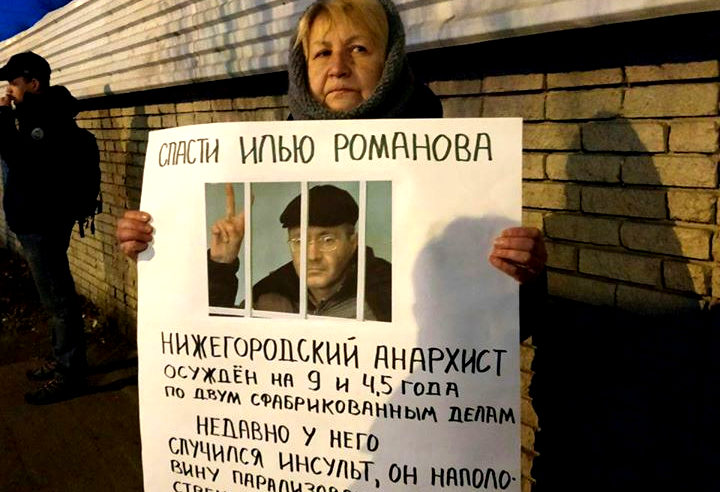 СПАСТИ ИЛЬЮ РОМАНОВА
НИЖЕГОРОДСКИЙ АНАРХИСТ
ОСУЖДЁН НА 9 И 4,5 ГОДА
ПО ДВУМ СФАБРИКОВАННЫМ ДЕЛАМ
НЕДАВНО У НЕГО
СЛУЧИЛСЯ ИНСУЛЬТ, ОН НАПОЛО-
ВИНУ